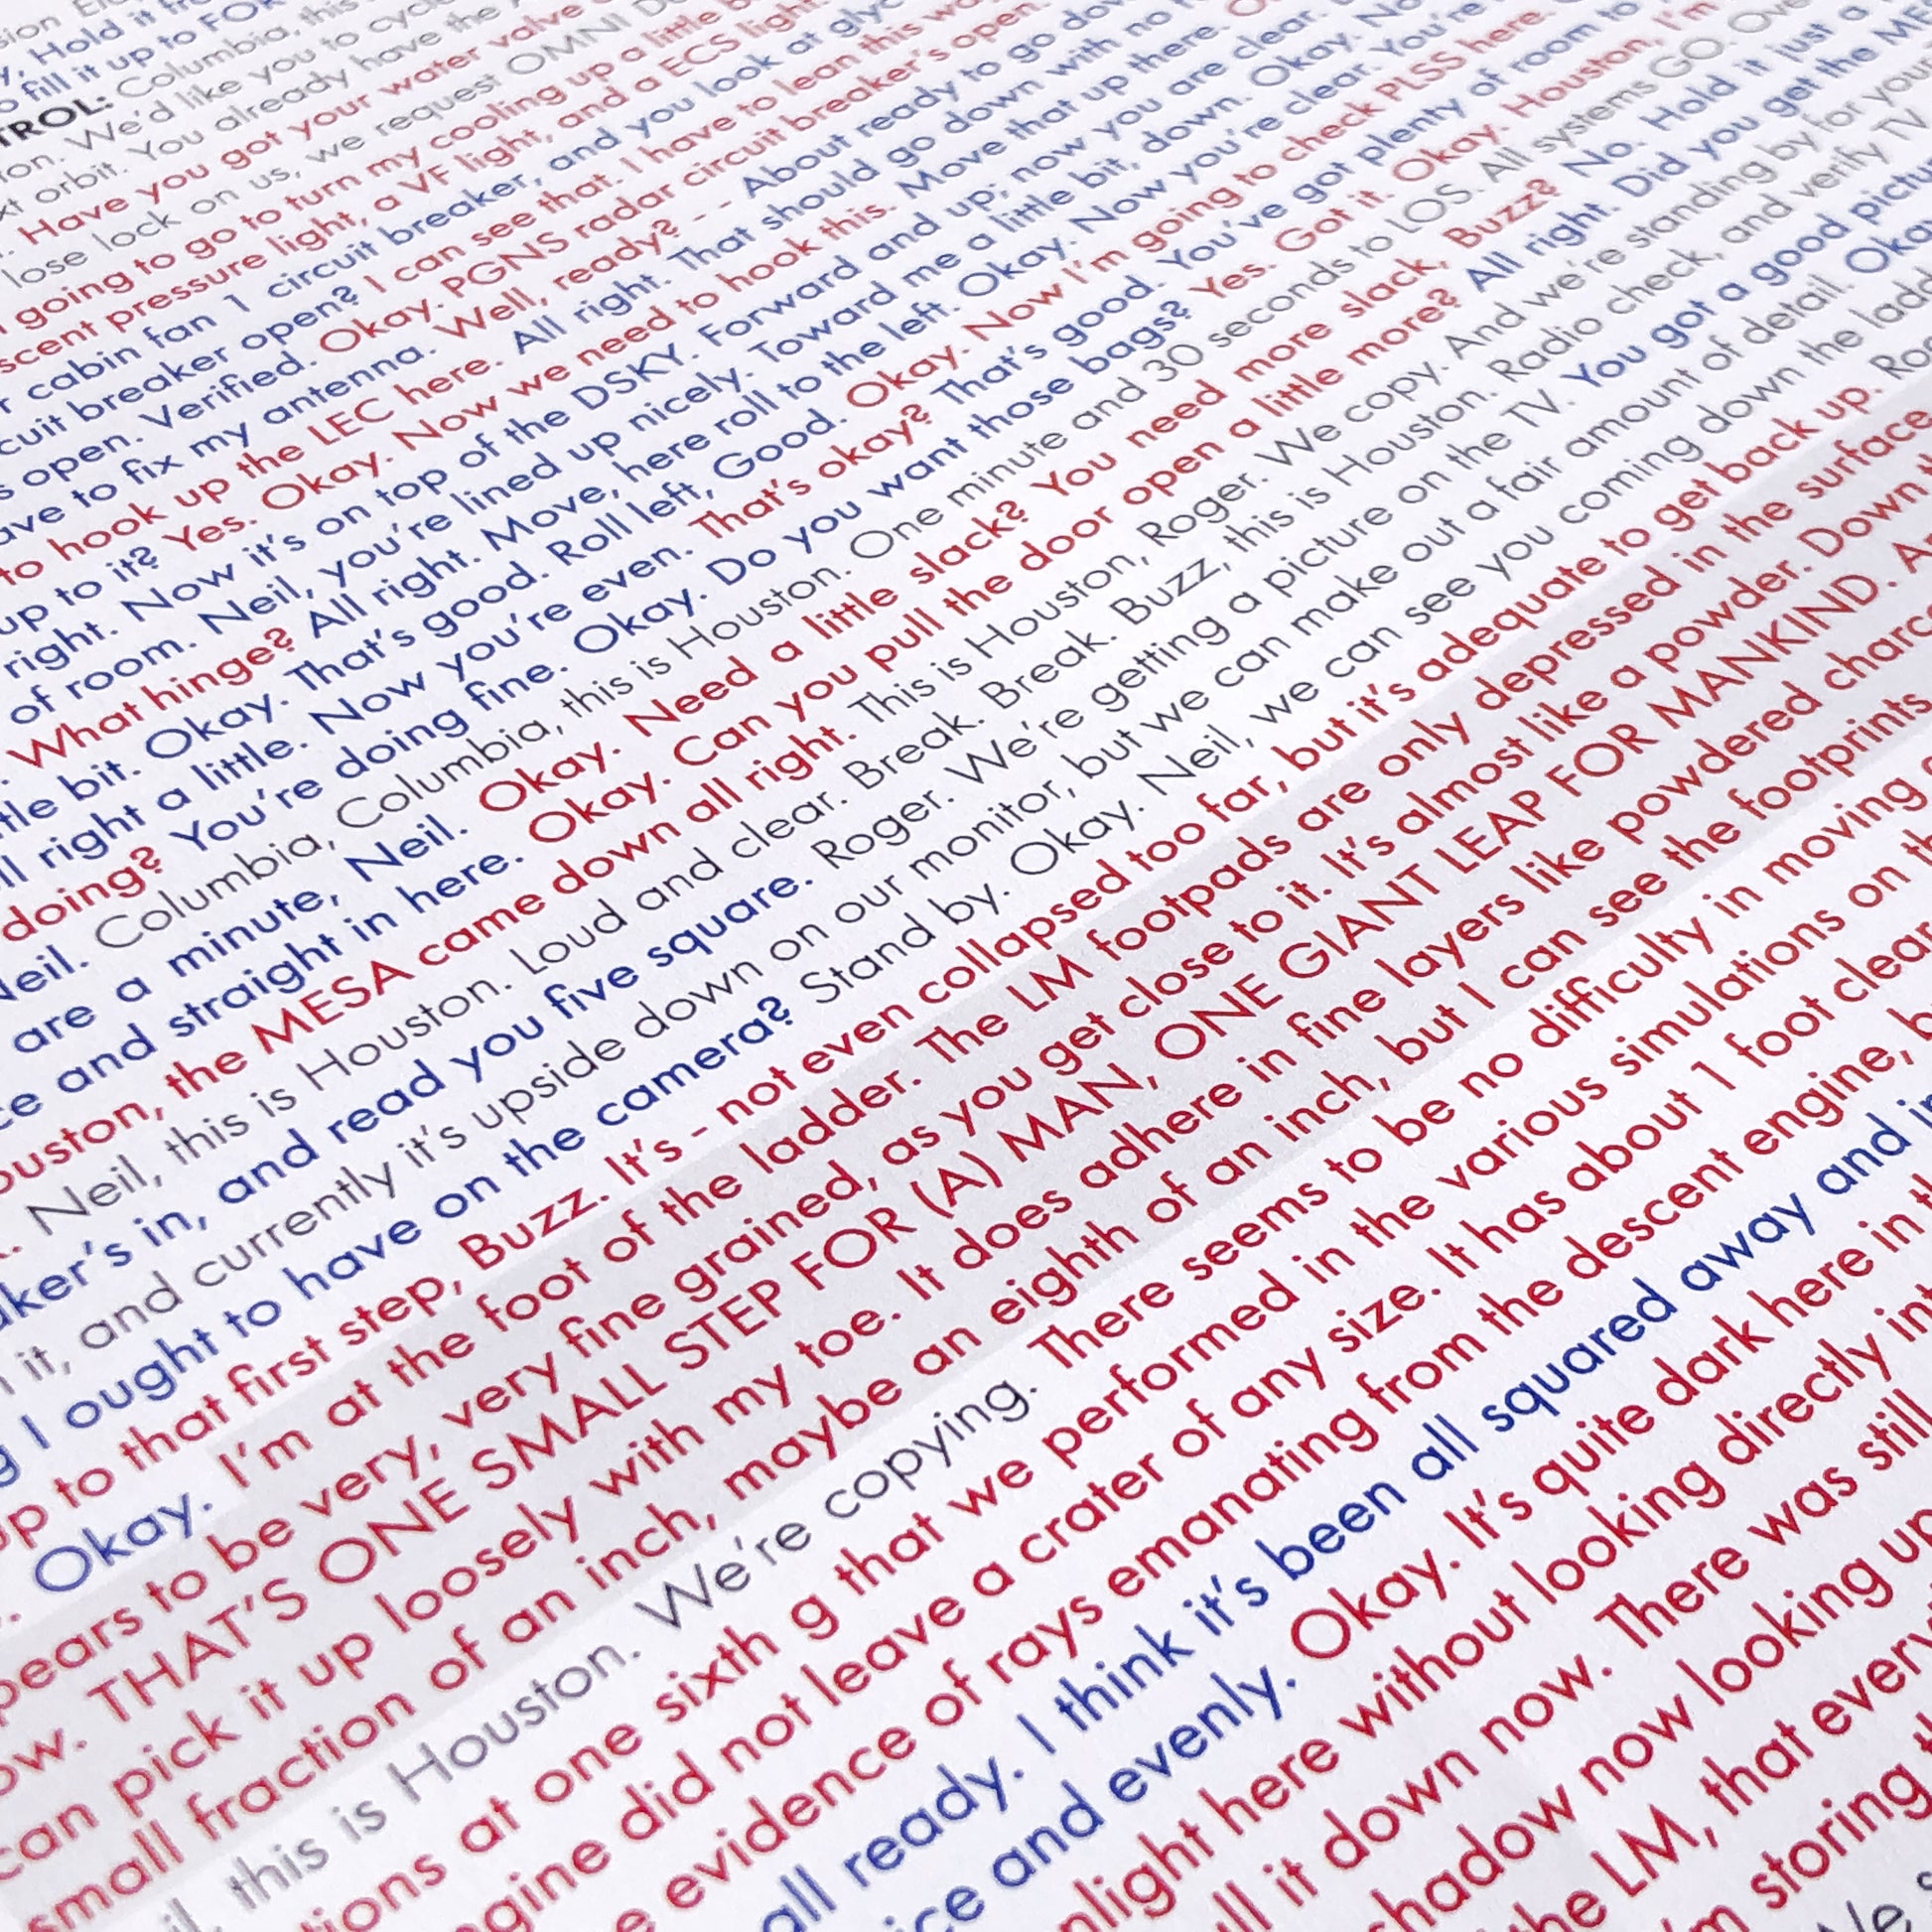 sion Ele
y, Hold it fr
o fill it up to FOR
TROL: Columbia, this
ion. We'd like you to cycl
xt orbit. You already have the
. Have you got your water valve
lose lock on us, we request OMNI
going to go to turn my cooling up a little b
scent pressure light, a VF light, and a ECS light.
r cabin fan 1 circuit breaker, and you look at glyc
cuit breaker open? I can see that. I have to lean this wa
s open. Verified. Okay. PGNS radar circuit breaker's open.
ave to fix my antenna. Well, ready? - - About ready to go dow
to hook up the LEC here. All right. That should go down with no
up to it? Yes. Okay. Now we need to hook this. Move that up there.
right. Now it's on top of the DSKY. Forward and up; now you are clear.
of room. Neil, you're lined up nicely. Toward me a little bit, down. Okay. No
. What hinge? All right. Move, here roll to the left. Okay. Now you're clear. You're
tle bit. Okay. That's good. Roll left, Good. Okay. Now I'm going to check PLSS here.
ll right a little. Now you're even. That's okay? That's good. You've got plenty of room to
doing? You're doing fine. Okay. Do you want those bags? Yes. Got it. Okay. Houston, I'm
Neil. Columbia, Columbia, this is Houston. One minute and 30 seconds to LOS. All systems GO. Ove
are a minute, Neil. Okay. Need a little slack? You need more slack, Buzz? No. Hold it just a
ce and straight in here. Okay. Can you pull the door open a little more? All right. Did you get the ME
ouston, the MESA came down all right. This is Houston, Roger. We copy. And we're standing by for your
. Neil, this is Houston. Loud and clear. Break. Break. Buzz, this is Houston. Radio check, and verify TV
aker's in, and read you five square. Roger. We're getting a picture on the TV. You got a good pictu
n it, and currently it's upside down on our monitor, but we can make out a fair amount of detail. Okay
g I ought to have on the camera? Stand by. Okay. Neil, we can see you coming down the ladd
up to that first step, Buzz. It's - not even collapsed too far, but it's adequate to get back up. Ro
. Okay. I'm at the foot of the ladder. The LM footpads are only depressed in the surface
pears to be very, very fine grained, as you get close to it. It's almost like a powder. Down th
ow. THAT'S ONE SMALL STEP FOR (A) MAN, ONE GIANT LEAP FOR MANKIND. A
can pick it up loosely with my toe. It does adhere in fine layers like powdered charc
small fraction of an inch, maybe an eighth of an inch, but I can see the footprints
il, this is Houston. We're copying. There seems to be no difficulty in moving
tions at one sixth g that we performed in the various simulations on th
gine did not leave a crater of any size. It has about 1 foot clear
e evidence of rays emanating from the descent engine, b
all ready. I think it's been all squared away and in
ice and evenly. Okay. It's quite dark here in th
nlight here without looking directly int
ll it down now. There was still
hadow now looking up
he LM, that every
'm storing th
We s